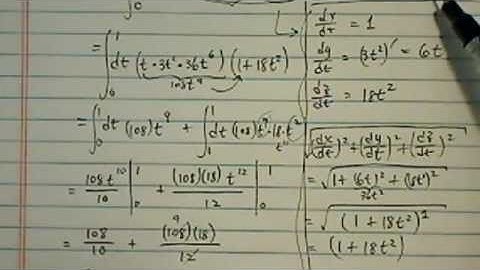 0
= ∫₀¹ dt (t · 3t² · 36t⁶) (1 + 18t²)
108t⁹
= ∫₀¹ dt (108) t⁹ + ∫₁¹ dt (108) t⁹ · 18 · t²
t¹¹
= 108t¹⁰/10 |₀¹ + (108)(18) t¹²/12 |₀¹
= 108/10 + (108)(18)/12
9
dx/dt = 1
dy/dt = (3t²)' = 6t
dz/dt = 18t²
√((dx/dt)² + (dy/dt)² + (dz/dt)²)
= √(1 + (6t)² + (18t²)²)
36t²
= √((1 + 18t²)²)
= (1 + 18t²)